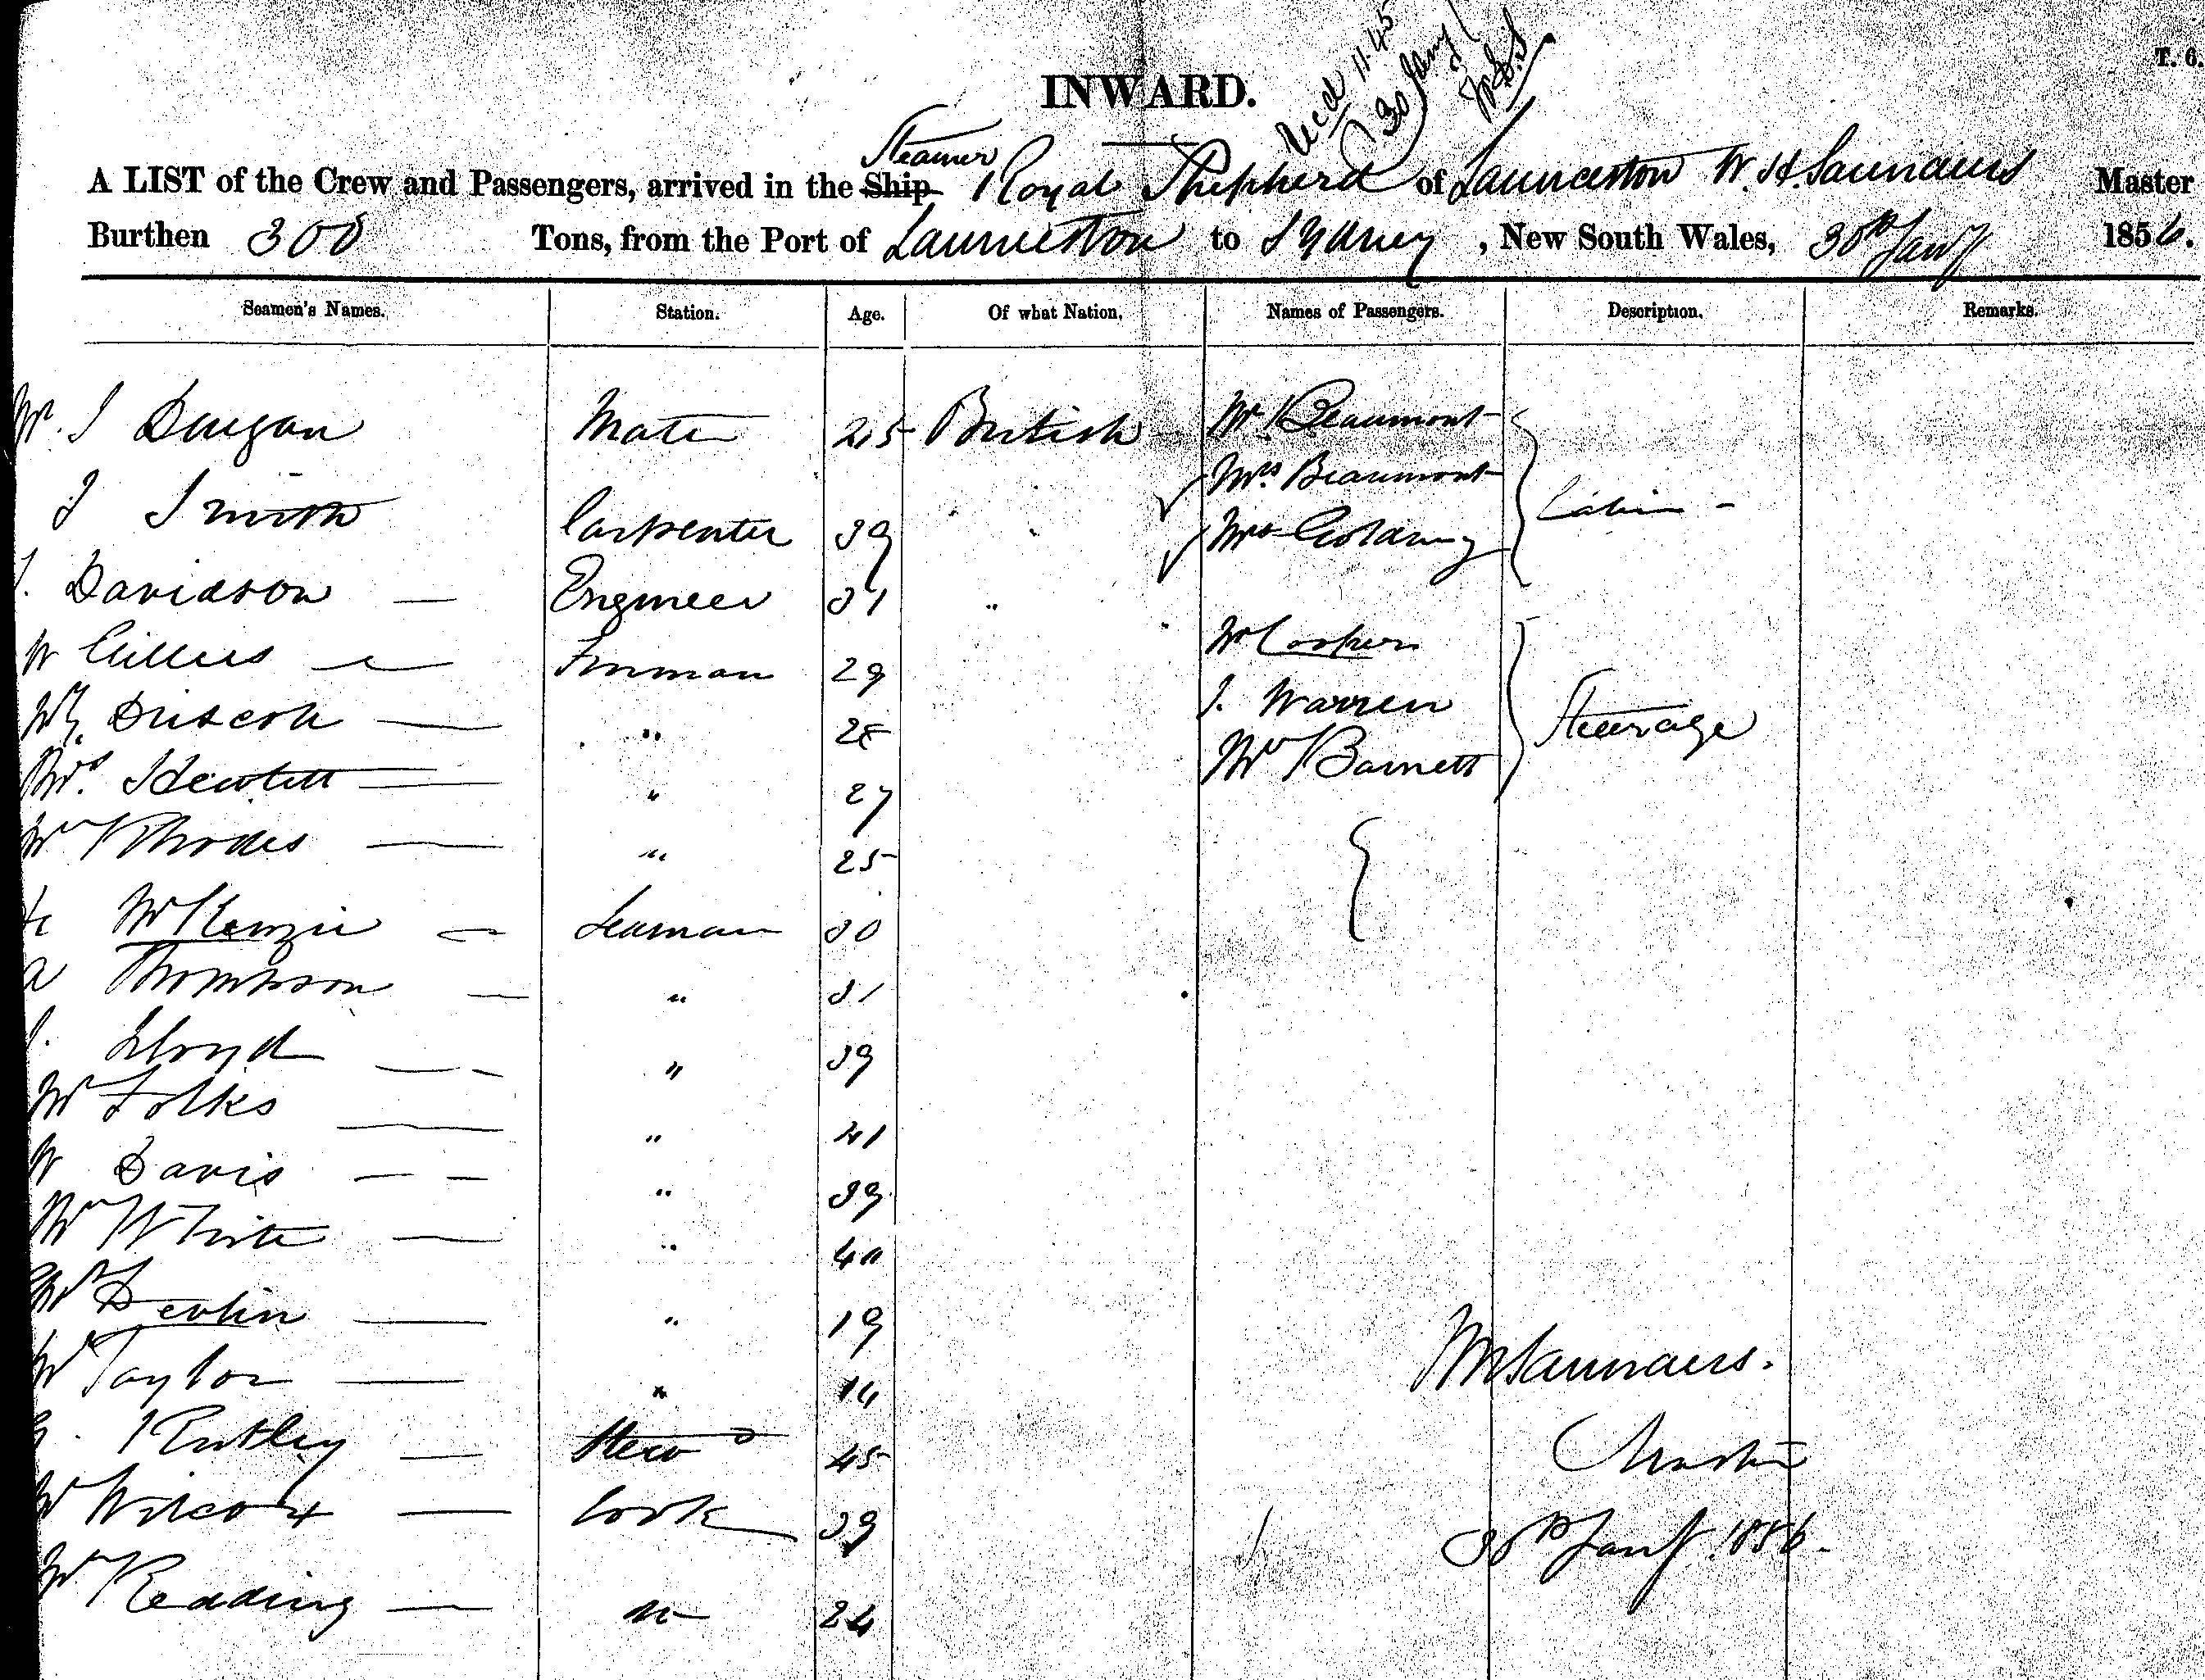 T. 6.
Recd 11.45
30 Jany
INWARD.
Steamer
A LIST of the Crew and Passengers, arrived in the Ship Royal Shepherd of Launceston W. H. Saunders Master
Burthen 308 Tons, from the Port of Launceston to Sydney, New South Wales, 30th Jany 1856.
Seamen's Names. Station. Age. Of what Nation. Names of Passengers. Description. Remarks.
Mr. J Dougan Mate 25 British Mr Beaumont
Mrs Beaumont
J Smith Carpenter 39 Mrs Golding Cabin
J. Davidson Engineer 31 "
W Gillies Fireman 29 Mr Cooper
Driscoll " 28 J. Warren Steerage
Hewlett " 27 Mr Barnett
Wm Rhodes " 25
McKenzie Seaman 30
A Thompson " 31
J. Lloyd " 39
Folks " 41
W Davis " 39
Wm White " 40
Devlin " 19
Taylor " 14
Rutley Stewd 45
W Wilcox Cook 39
Wm Reading 24
WHSaunders.
Master
30th Jany. 1856.